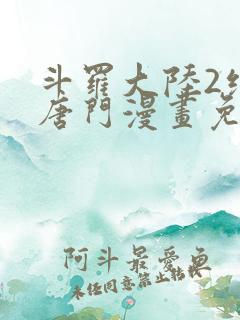 斗羅大陸2
唐門漫畫免
阿斗最愛魚
未经同意禁止转载